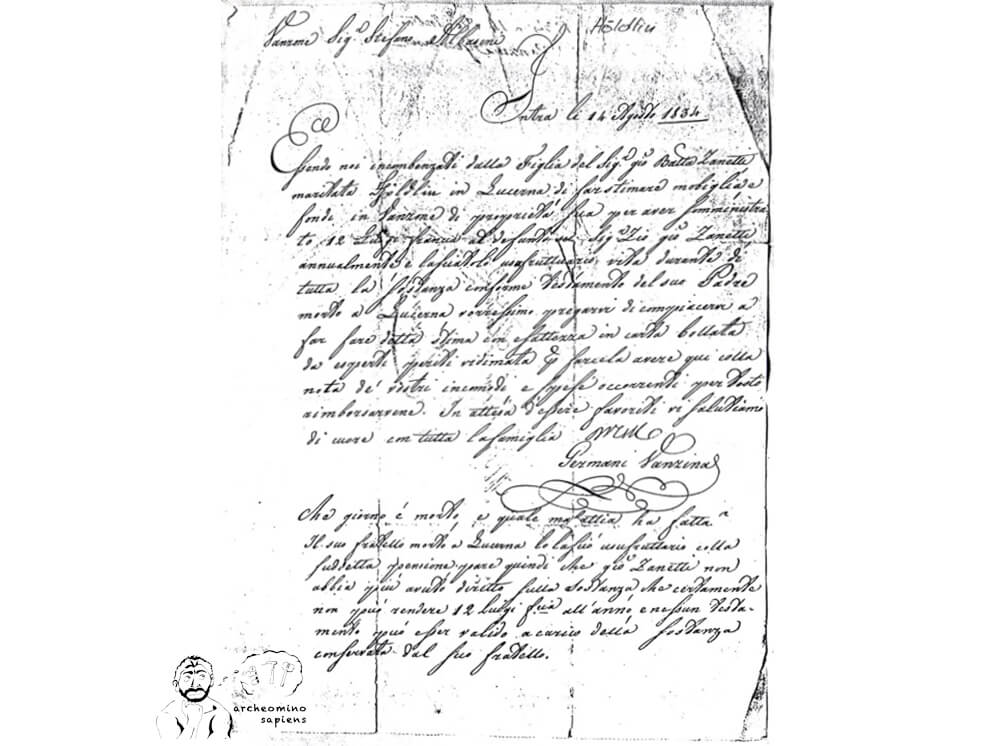 Höldlin
Vanzone Sig.r Stefano Albasini
Intra le 14 Agosto 1834
Essendo noi incombenzati dalla Figlia del Sig.r gio Batta Zanetti
maritata Göldlin in Lucerna di far stimare mobiglia e
fondi in Vanzone di proprietà sua per aver somministra
to 12 Luigi franchi al defunto Sig.r Zio gio Zanetti
annualmente e lasciatolo usufruttuario vita durante di
tutta la sostanza conforme testamento del suo Padre
morto a Lucerna vorressimo pregarvi di compiacervi a
far fare detta stima con esattezza in carta bollata
da esperti periti vidimata e farcela avere qui colla
nota de' vostri incomodi e spese occorrenti per tosto
rimborsarvene. In attesa d'essere favoriti vi salutiamo
di cuore con tutta la famiglia
Germani Vanzina
Che giorno é morto, e quale malattia ha fatta
Il suo fratello morto a Lucerna lo lasció usufruttario colla
suddetta pensione pare quindi che gio Zanetti non
abbia piú avuto diretto sulla sostanza che certamente
non puó rendere 12 luigi f.cia all'anno e nessun testa-
mento puó esser valido a carico della sostanza
conservata dal suo fratello.
archeomino
sapiens